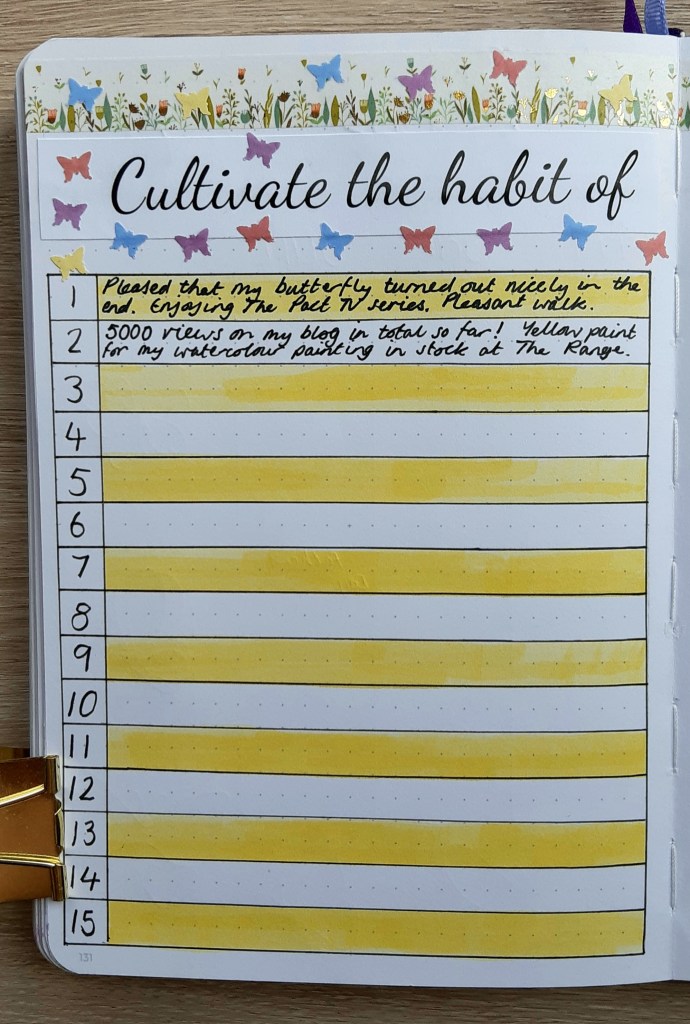 Cultivate the habit of
1 Pleased that my butterfly turned out nicely in the
end. Enjoying The Pact TV series. Pleasant walk.
2 5000 views on my blog in total so far! Yellow paint
for my watercolour painting in stock at The Range.
3
4
5
6
7
8
9
10
11
12
13
14
15
131